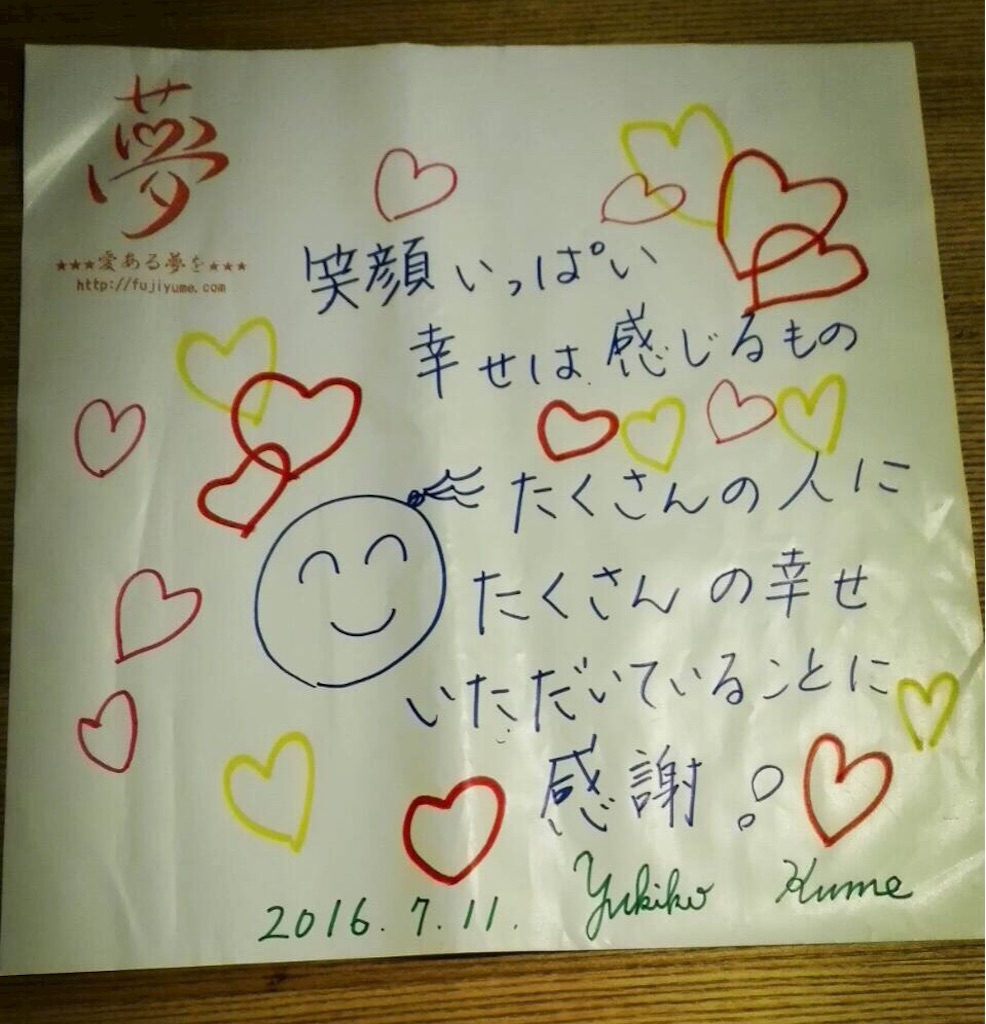 夢
★★★愛ある夢を★★★
http://fujiyume.com
笑顔いっぱい
幸せは感じるもの
たくさんの人に
たくさんの幸せ
いただいていることに
感謝!
2016.7.11. Yukiko Kume